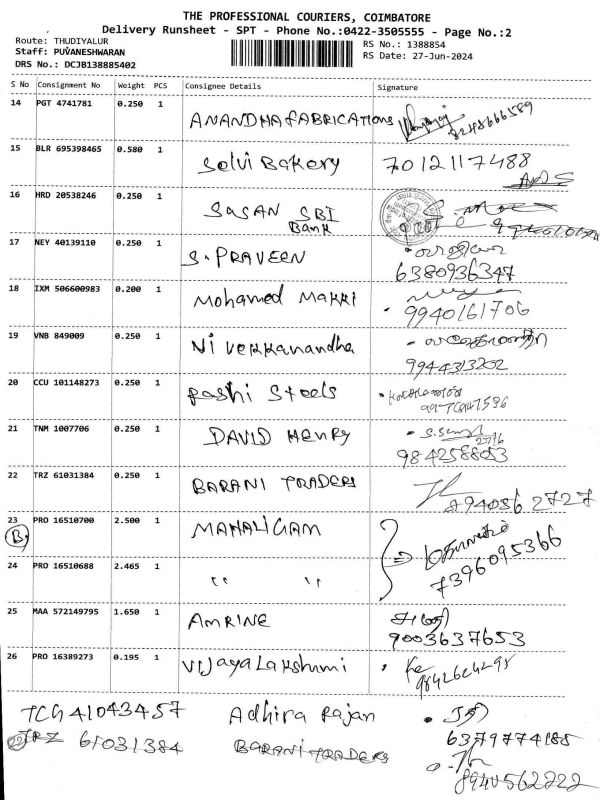 THE PROFESSIONAL COURIERS, COIMBATORE
Delivery Runsheet - SPT - Phone No.:0422-3505555 - Page No.:2
Route: THUDIYALUR
RS No.: 1388854
Staff: PUVANESHWARAN
RS Date: 27-Jun-2024
DRS No.: DCJB138885402
S No Consignment No Weight PCS Consignee Details Signature
14 PGT 4741781 0.250 1 ANANDHA FABRICATIONS 8248666589
15 BLR 695398465 0.580 1 Selvi Bakery 7012117488
16 HRD 20538246 0.250 1 SASAN SBI
Bank
17 NEY 40139110 0.250 1 S. PRAVEEN
6380936347
18 IXM 506600983 0.200 1 Mohamed Makki
9940161706
19 VNB 849009 0.250 1 Nivekkanandha
9944313202
20 CCU 101148273 0.250 1 Rashi Steels
21 TNM 1007706 0.250 1 DAVID HENRY
9842588053
22 TRZ 61031384 0.250 1 BARANI TRADERS
23 PRO 16510700 2.500 1 MAHALIGAM
B
7396095366
24 PRO 16510688 2.465 1 " "
25 MAA 572149795 1.650 1 AMRINE
9003637653
26 PRO 16389273 0.195 1 Vijayalakshmi
TCG 41043457 Adhira Rajan
6379774185
22 TRZ 61031384 BARANI TRADERS